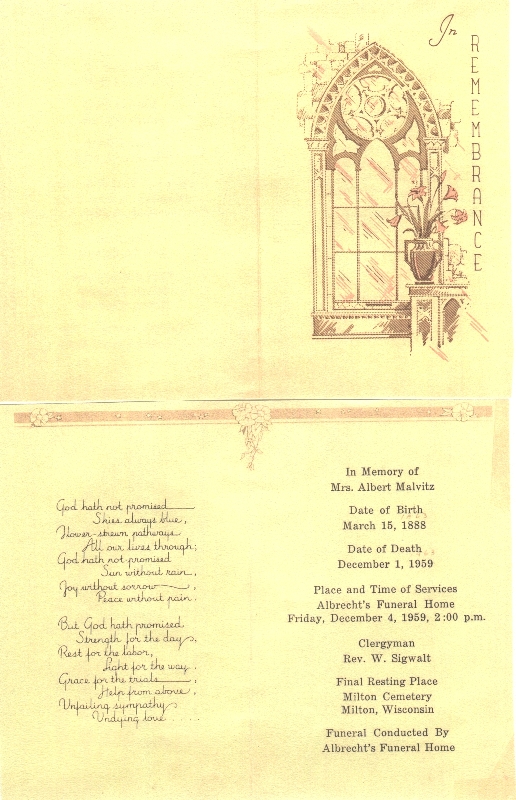 In
REMEMBRANCE
God hath not promised
Skies always blue,
Flower-strewn pathways
All our lives through;
God hath not promised
Sun without rain,
Joy without sorrow,
Peace without pain.
But God hath promised
Strength for the day,
Rest for the labor,
Light for the way.
Grace for the trials,
Help from above,
Unfailing sympathy
Undying love . . . .
In Memory of
Mrs. Albert Malvitz
Date of Birth
March 15, 1888
Date of Death
December 1, 1959
Place and Time of Services
Albrecht's Funeral Home
Friday, December 4, 1959, 2:00 p.m.
Clergyman
Rev. W. Sigwalt
Final Resting Place
Milton Cemetery
Milton, Wisconsin
Funeral Conducted By
Albrecht's Funeral Home